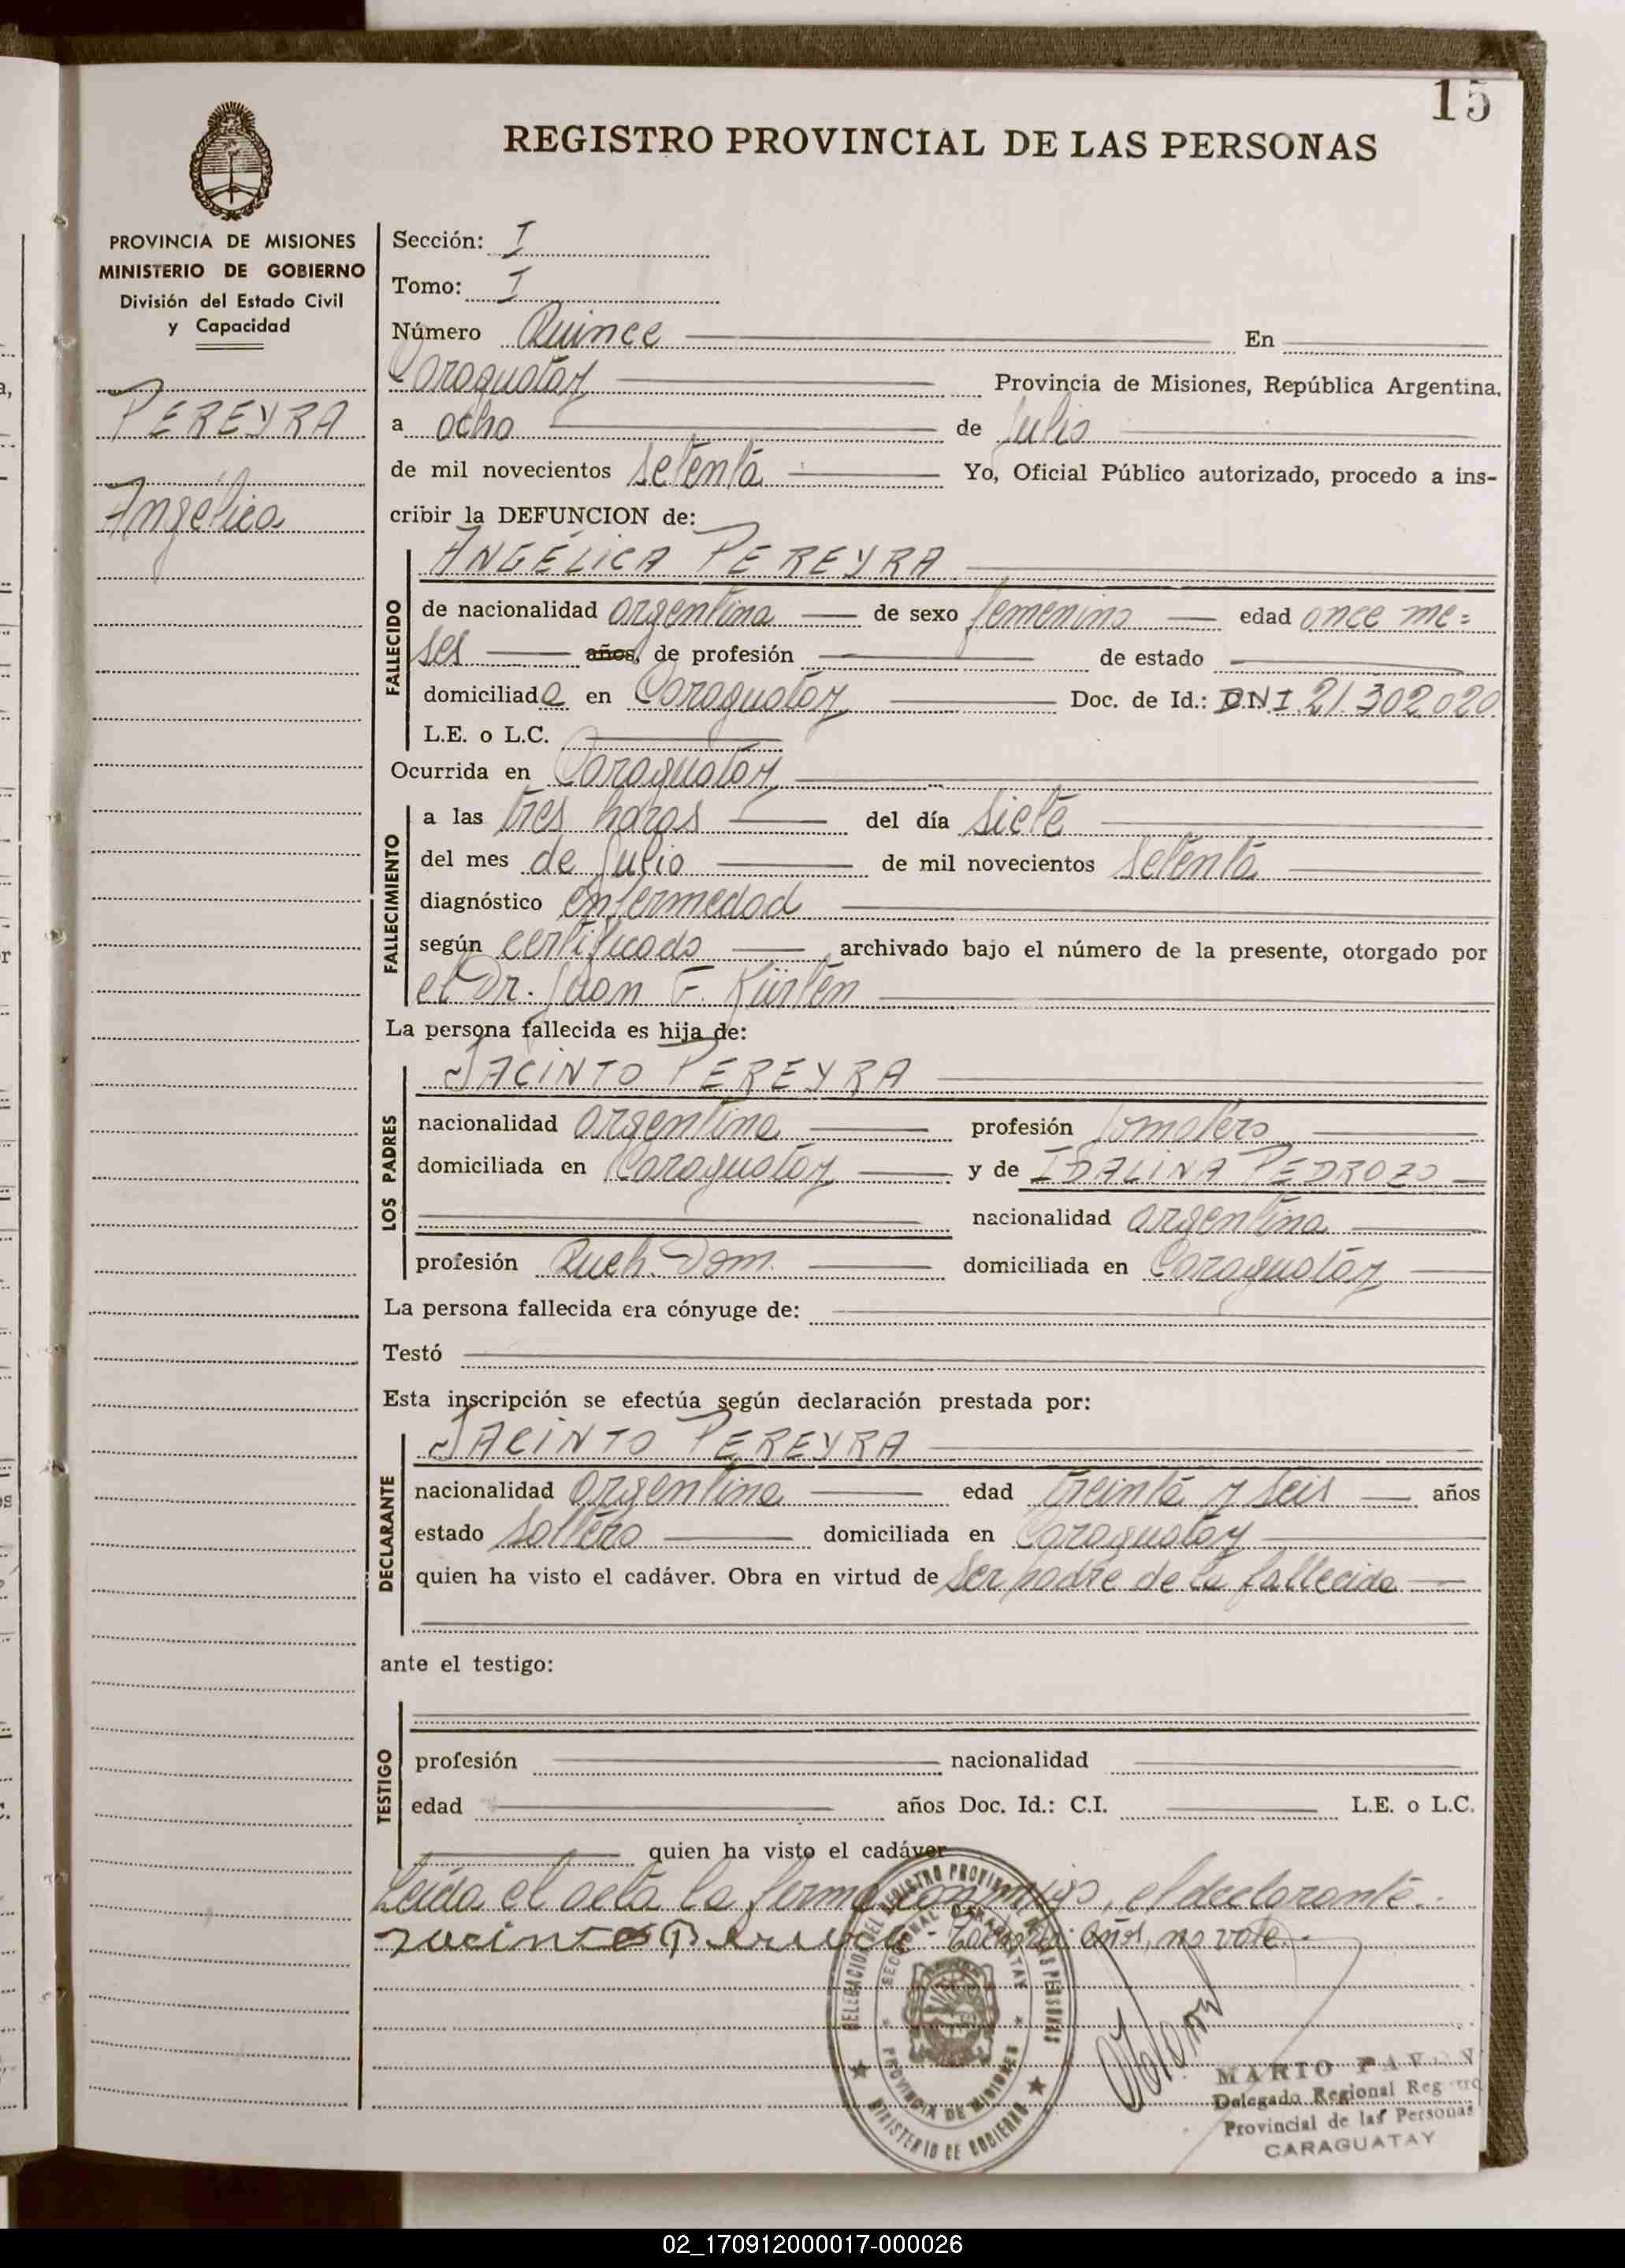 15
REGISTRO PROVINCIAL DE LAS PERSONAS
PROVINCIA DE MISIONES
MINISTERIO DE GOBIERNO
División del Estado Civil
y Capacidad
PEREYRA
Angélica
Sección: I
Tomo: I
Número Quince En
Caraguatay Provincia de Misiones, República Argentina,
a ocho de Julio
de mil novecientos setenta Yo, Oficial Público autorizado, procedo a ins-
cribir la DEFUNCION de:
FALLECIDO
ANGÉLICA PEREYRA
de nacionalidad argentina de sexo femenino edad once me=
ses años, de profesión de estado
domiciliada en Caraguatay Doc. de Id.: DNI 21.302.020
L.E. o L.C.
Ocurrida en Caraguatay
FALLECIMIENTO
a las tres horas del día siete
del mes de Julio de mil novecientos setenta
diagnóstico enfermedad
según certificado archivado bajo el número de la presente, otorgado por
el Dr. Juan F. Kürten
La persona fallecida es hija de:
LOS PADRES
JACINTO PEREYRA
nacionalidad argentina profesión Jornalero
domiciliada en Caraguatay y de IDALINA PEDROZO
nacionalidad argentina
profesión Queh. Dom. domiciliada en Caraguatay
La persona fallecida era cónyuge de:
Testó
Esta inscripción se efectúa según declaración prestada por:
DECLARANTE
JACINTO PEREYRA
nacionalidad argentina edad treinta y seis años
estado soltero domiciliada en Caraguatay
quien ha visto el cadáver. Obra en virtud de ser padre de la fallecida
ante el testigo:
TESTIGO
profesión nacionalidad
edad años Doc. Id.: C.I. L.E. o L.C.
quien ha visto el cadáver
Leída el acta la firma conmigo, el declarante.
Jacinto Pereyra - años, no vale.
DELEGACION DEL REGISTRO PROVINCIAL DE LAS PERSONAS
SECCIONAL CARAGUATAY
PROVINCIA DE MISIONES
MINISTERIO DE GOBIERNO
MARIO PAVON
Delegado Regional Registro
Provincial de las Personas
CARAGUATAY
02_170912000017-000026